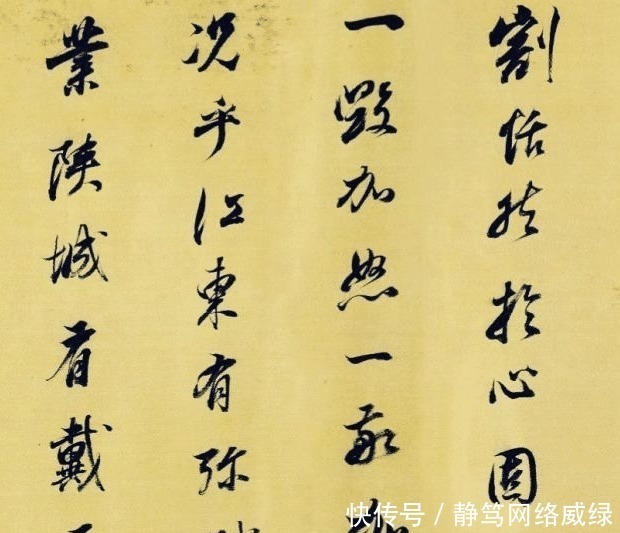 割恬然於心固
一毀加怒一敬
况乎江東有弥
業陝城有戴
快传号 / 静笃网络威绿